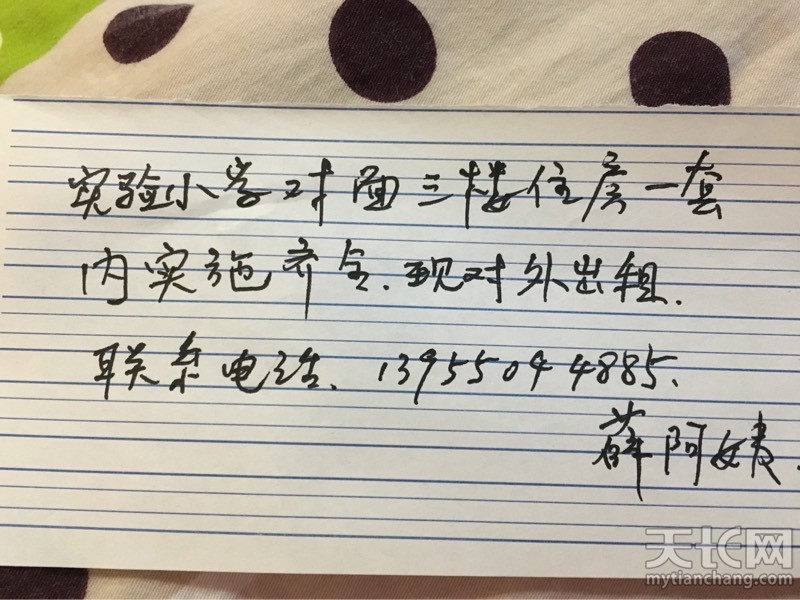 实验小学对面三楼住房一套
内实施齐全.现对外出租.
联系电话. 13955044885.
薛阿姨.
天长网
mytianchang.com